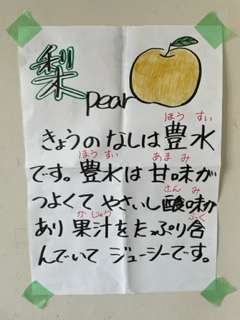 梨
pear
ほう すい
きょうのなしは豊水
ほう すい あま み
です。豊水は甘味が
さん み
つよくて やさいし酸味が
か じゅう ふく
あり果汁をたっぷり含
んでいて ジューシーです。